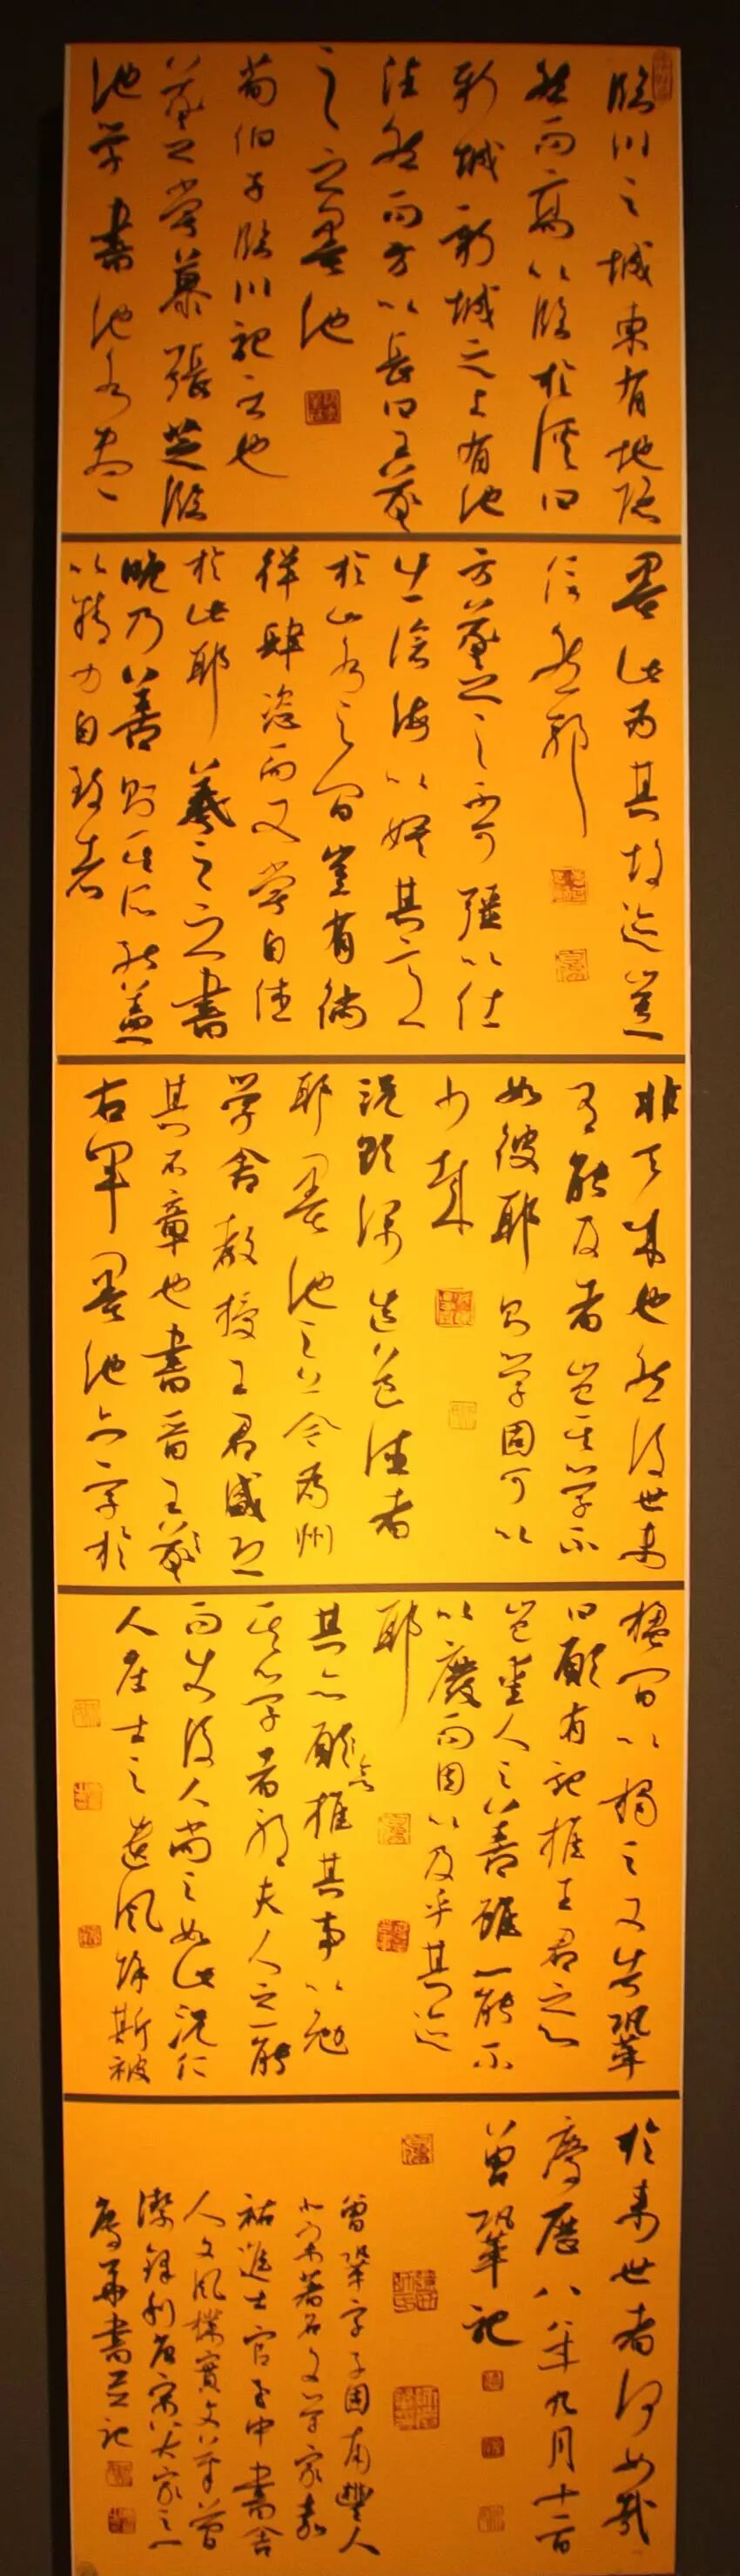 臨川之城東有地隱
然而高以臨於溪曰
新城新城之上有池
洼然而方以長曰王羲
之之墨池
荀伯子臨川記云也
羲之嘗慕張芝臨
池學書池水盡
墨此為其故迹豈
信然耶
方羲之之不可强以仕
出滄海以娛其意
於山水之間豈有徜
徉肆恣而又嘗自休
於此耶羲之之書
晚乃善則其所能蓋
以精力自致者
非天成也然後世未
有能及者豈其學不
如彼耶則學固可以
少哉
況欲深造道德者
耶墨池之上今為州
學舍教授王君盛恐
其不章也書晉王羲
右軍墨池六字於
楹間以揭之又告鞏
曰願有記推王君之心
豈愛人之善雖一能不
以廢而因以及乎其迹
耶
其亦願推其事以勉
其學者耶夫人之一能
而使後人尚之如此況仁
人莊士之遺風餘斯被
於來世者何如哉
慶曆八年九月十二日
曾鞏記
曾鞏字子固南豐人
北宋著名文學家嘉
祐進士官至中書舍
人文風樸實文筆
潔鋒利唐宋八大家之一
書並記